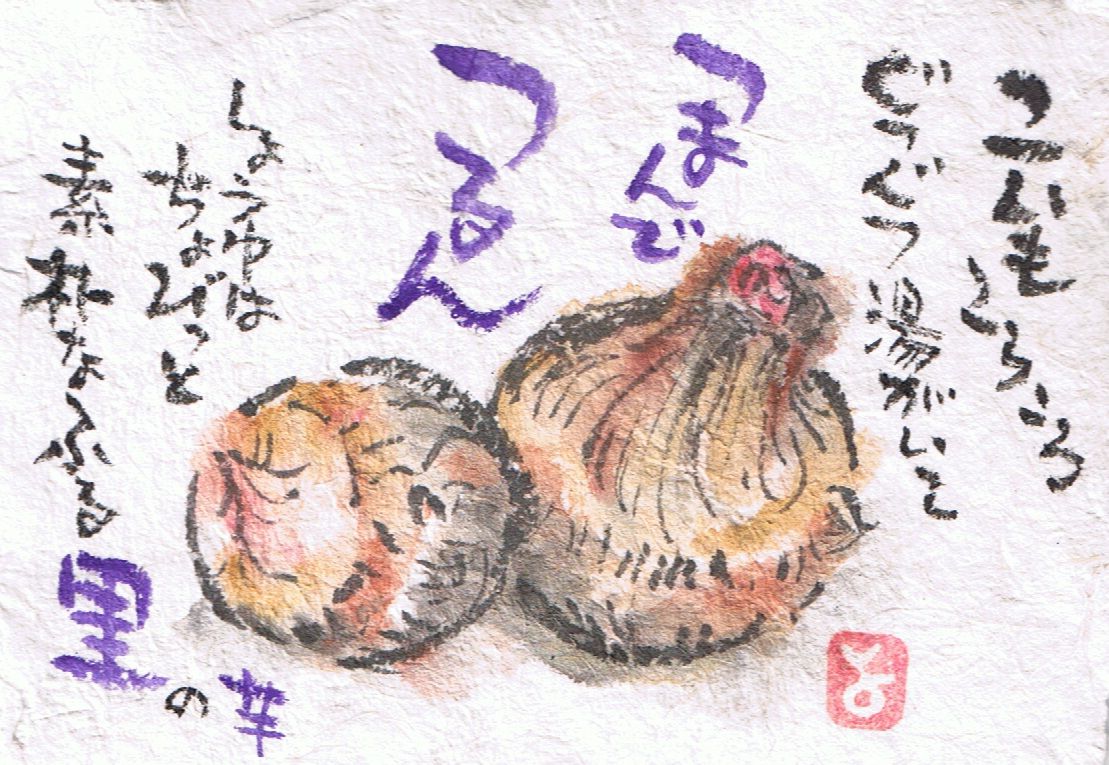 こいもころころ
ぐつぐつ湯がいて
つまんで
つるん
しょうゆは
ちょびっと
素朴なふる里の芋
よ